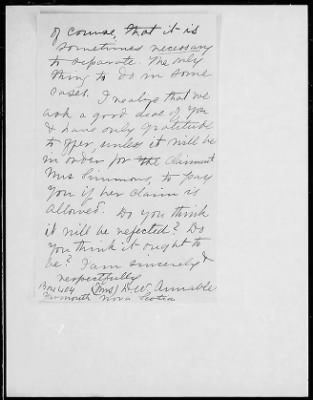 of course, that it is
sometimes necessary
to separate. The only
thing to do in some
cases. I realize that we
ask a good deal of you
& have only gratitude
to offer, unless it will be
in order for the Claimant
Mrs Simmons, to pay
you if her claim is
allowed. Do you think
it will be rejected? Do
you think it ought to
be? I am sincerely &
respectfully
Box 404 (Mrs) D. W. Annable
Yarmouth Nova Scotia